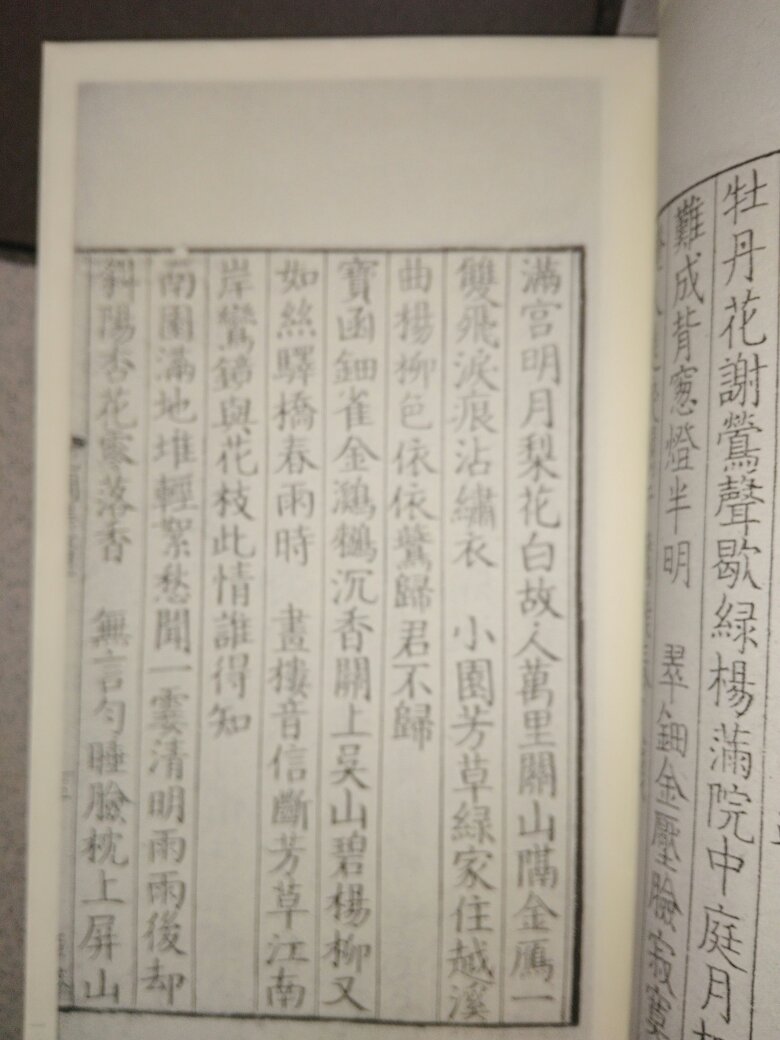 牡丹花謝鶯聲歇綠楊滿院中庭月
難成背窻燈半明　翠鈿金壓臉寂寞
滿宮明月梨花白故人萬里關山隔金鴈一
雙飛淚痕沾繡衣　小園芳草綠家住越溪
曲楊柳色依依鷰歸君不歸
寶函鈿雀金鸂鶒沉香關上吳山碧楊柳又
如絲驛橋春雨時　畫樓音信斷芳草江南
岸鸞鏡與花枝此情誰得知
南園滿地堆輕絮愁聞一霎清明雨雨後却
斜陽杏花零落香　無言勻睡臉枕上屏山